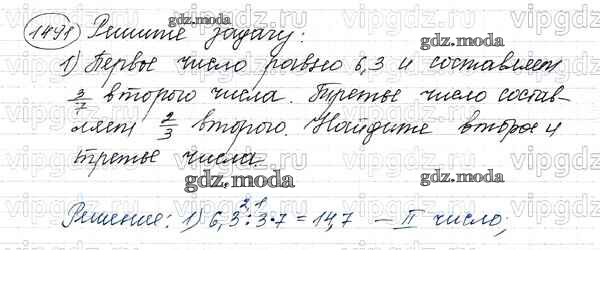 1491 Решите задачу:
1) Первое число равно 6,3 и составляет
3/7 второго числа. Третье число состав-
ляет 2/3 второго. Найдите второе и
третье числа.
Решение: 1) 6,3 : 3 · 7 = 14,7 – II число;
2,1
gdz.moda
gdz.moda
gdz.moda
gdz.moda
gdz.moda
vipgdz
vipgdz
vipgdz